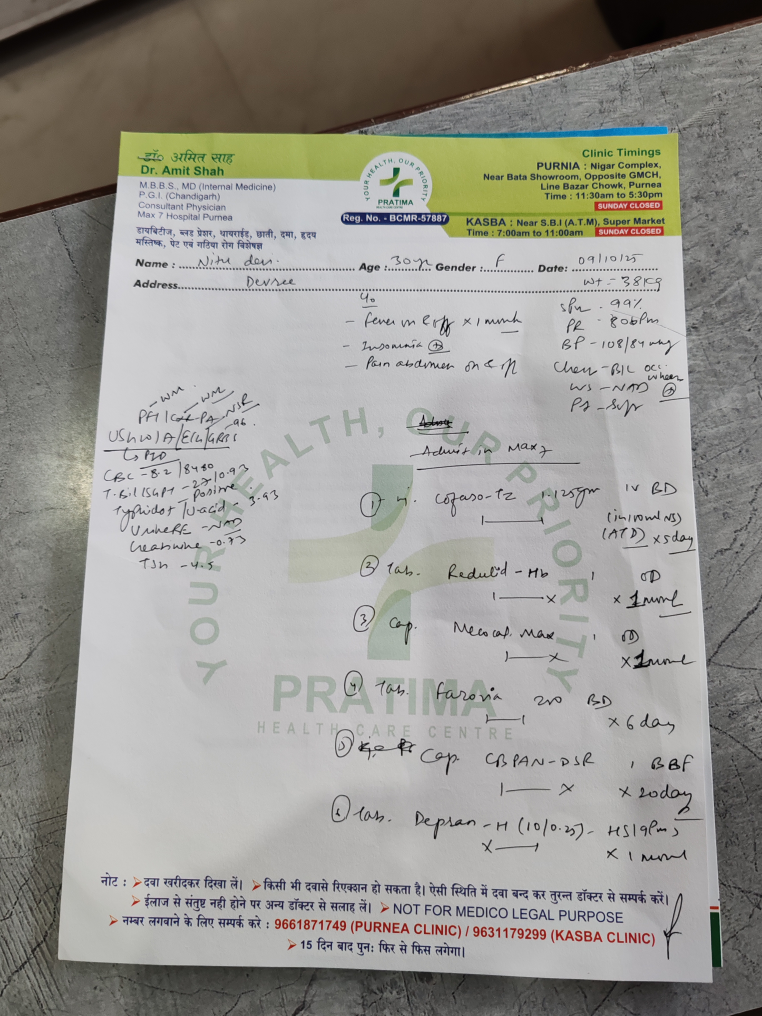 डॉ० अमित साह
Dr. Amit Shah
M.B.B.S., MD (Internal Medicine)
P.G.I. (Chandigarh)
Consultant Physician
Max 7 Hospital Purnea
डायबिटीज, ब्लड प्रेशर, थायराईड, छाती, दमा, हृदय
मस्तिष्क, पेट एवं गठिया रोग विशेषज्ञ
YOUR HEALTH, OUR PRIORITY
PRATIMA
HEALTH CARE CENTRE
Reg. No. - BCMR-57887
Clinic Timings
PURNIA : Nigar Complex,
Near Bata Showroom, Opposite GMCH,
Line Bazar Chowk, Purnea
Time : 11:30am to 5:30pm
SUNDAY CLOSED
KASBA : Near S.B.I (A.T.M), Super Market
Time : 7:00am to 11:00am SUNDAY CLOSED
Name : Nitu Age : 30yr Gender : F Date: 09/10/25
Address
Wt - 38kg
- Fever on & off x 1 month
- Insomnia +
- Pain abdomen on & off
SpO2 - 99%
PR - 80bpm
BP - 108/84 mmhg
Chest - B/L occ. wheeze +
- NAD
PA - Soft
CBC - 8.2 / 8480
T.Bil/SGPT - 27/0.93
Typhidot / U.acid - Positive 3.93
Urine RE - NAD
Creatinine - 0.73
TSH - 4.5
Admit in Max 7
1 1.125gm IV BD
(in 100ml NS)
(ATD) x 5 day
2 Tab. - Hb 1 OD
x 1 month
3 Cap. Max 1 OD
x 1 month
4 Tab. 200 BD
x 6 day
5 Cap CBPAN-DSR 1 BBF
x 20 day
6 Tab. Depran-H (10/0.25) - HS/9Pm
x 1 month
YOUR HEALTH, OUR PRIORITY
PRATIMA
HEALTH CARE CENTRE
नोट : ➤ दवा खरीदकर दिखा लें। ➤ किसी भी दवासे रिएक्शन हो सकता है। ऐसी स्थिति में दवा बन्द कर तुरन्त डॉक्टर से सम्पर्क करें।
➤ ईलाज से संतुष्ट नही होने पर अन्य डॉक्टर से सलाह लें। ➤ NOT FOR MEDICO LEGAL PURPOSE
➤ नम्बर लगवाने के लिए सम्पर्क करे : 9661871749 (PURNEA CLINIC) / 9631179299 (KASBA CLINIC)
➤ 15 दिन बाद पुन: फिर से फिस लगेगा।